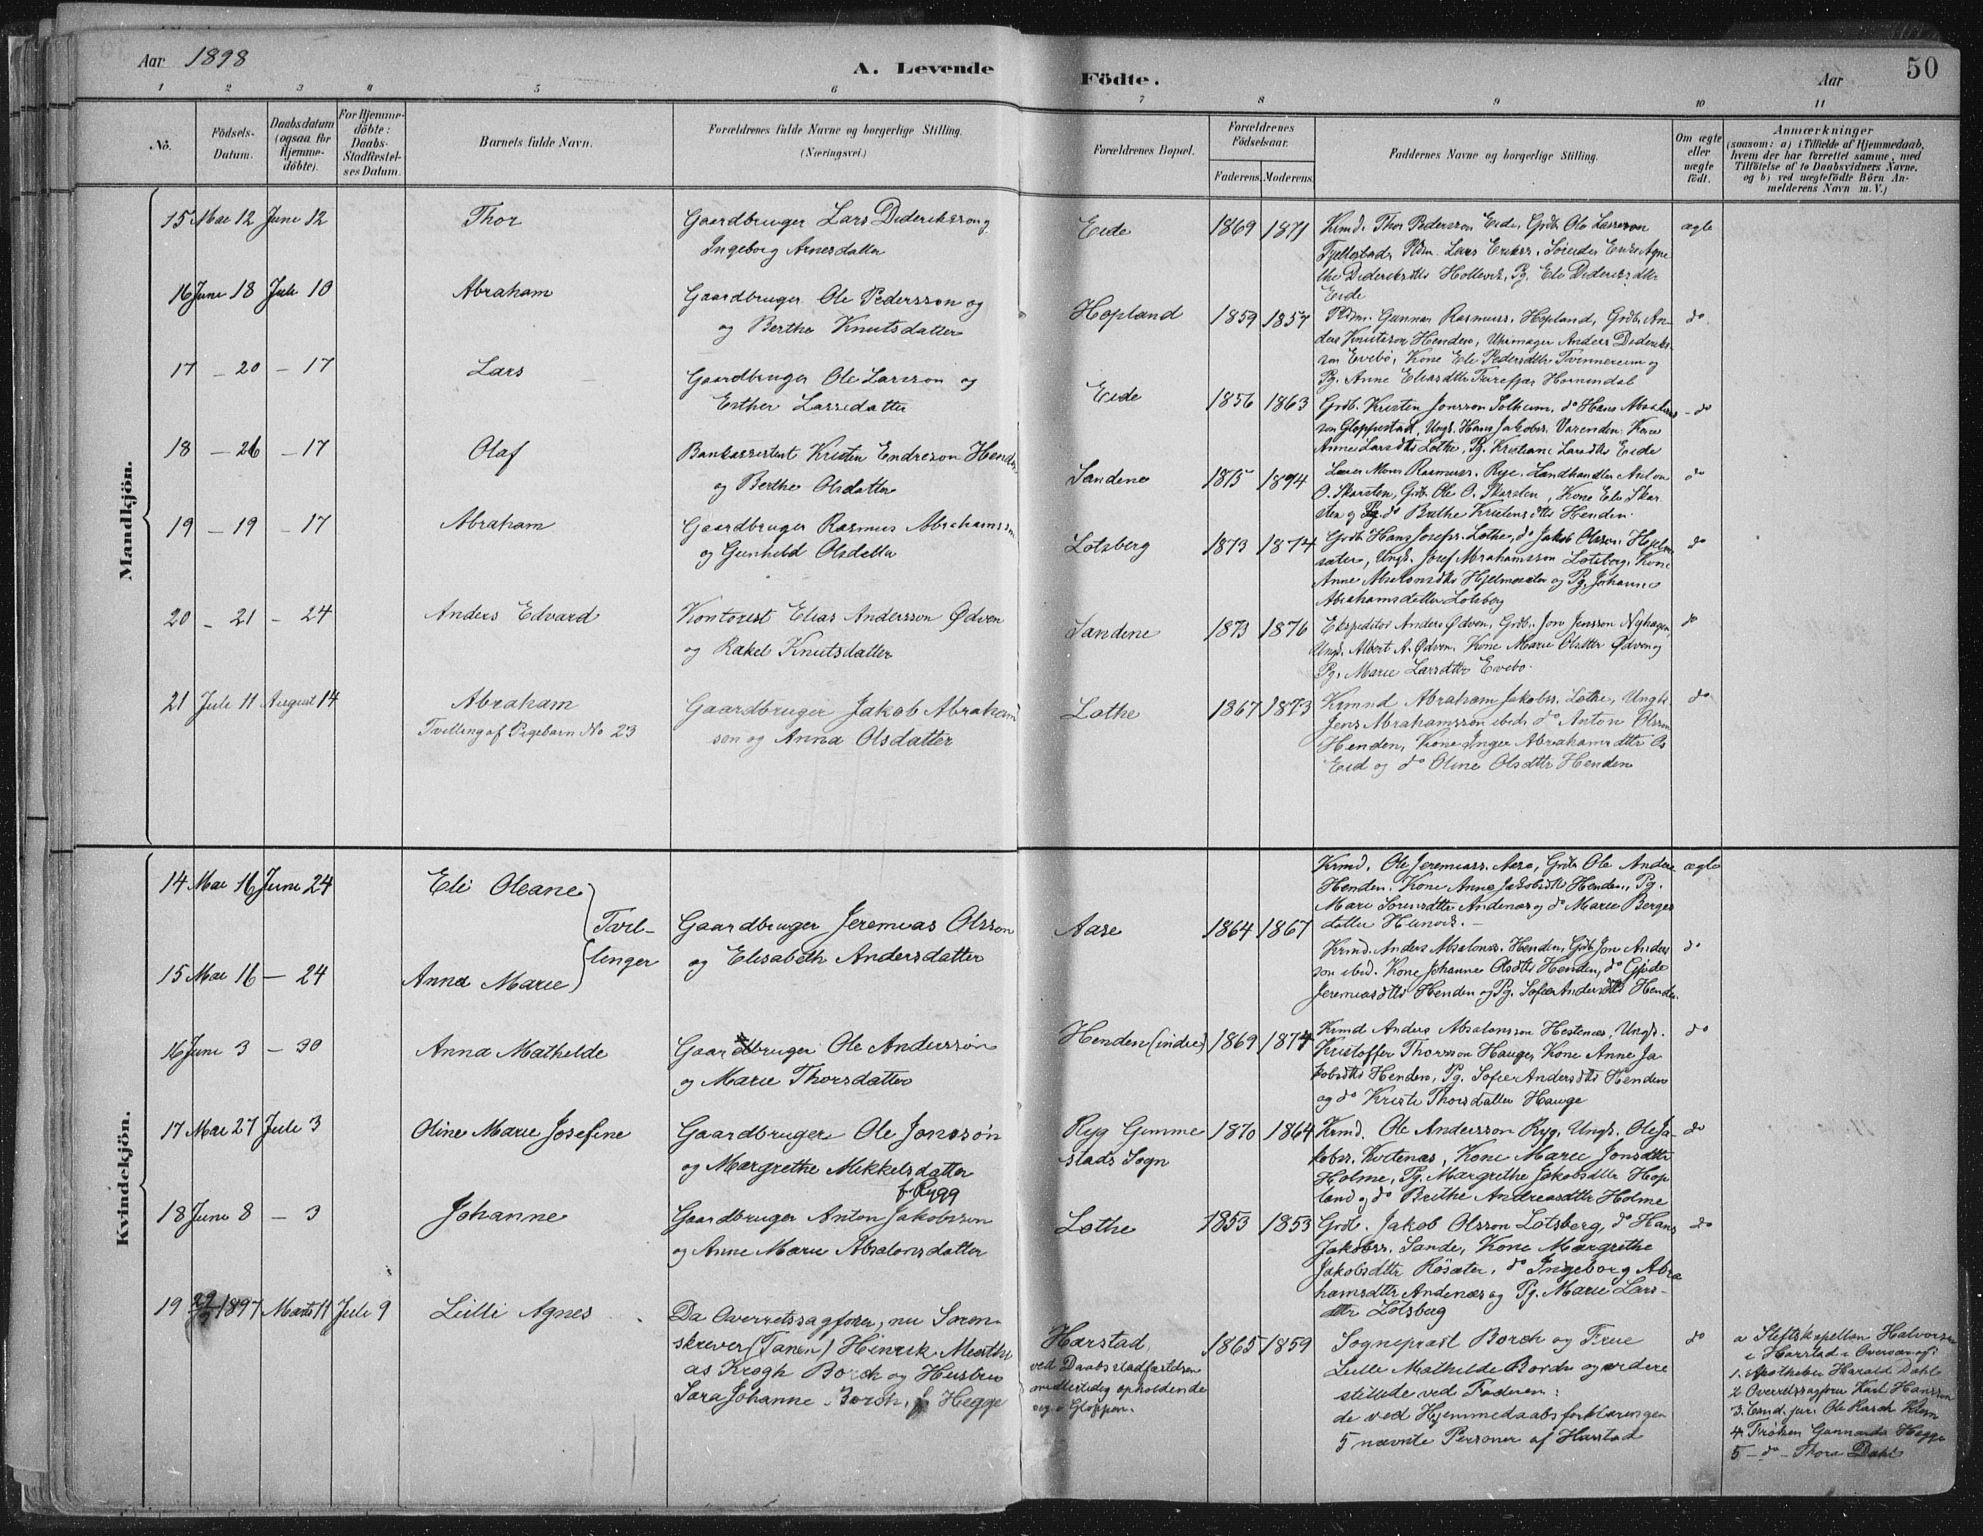 Aar 1898
A. Levende Födte.
Aar
50
1 2 3 4 5 6 7 8 9 10 11
No.
Födsels-
Datum.
Daabsdatum
(ogsaa for
Hjemme-
döbte).
For Hjemme-
döbte:
Daabs-
Stadfæstel-
ses Datum.
Barnets fulde Navn.
Forældrenes fulde Navne og borgerlige Stilling.
(Næringsvei.)
Forældrenes Bopæl.
Forældrenes
Födselsaar.
Faderens. Moderens.
Faddernes Navne og borgerlige Stilling.
Om ægte
eller
uægte
født.
Anmærkninger
(saasom: a) i Tilfælde af Hjemmedaab,
hvem der har forrettet samme, med
Tilföielse af to Daabsvidners Navne,
og b) ved uægtefödte Börn An-
melderens Navn m. V.)
Mandkjön.
15 Mai 12 Juni 12 Thor
Gaardbruger Lars Dideriksson og
Ingeborg Arnesdatter
Eide 1869 1871
Krmd. Thor Pedersson Eide, Grdb. Ole Larsson
Fjellestad, Pldm. Lars Erikss. Eide, Agne
the Dideriksdtr Hollevik, Pg. Eli Dideriksdtr
Eide
ægte
16 Juni 18 Juli 10 Abraham
Gaardbruger Ole Pedersson og
og Berthe Knutsdatter
Hopland 1859 1857
Pldm. Gunnar Rasmuss. Hopland, Grdb. An-
ders Knutsson Henden, Uhrmager Anders Diderik-
son Evebø, Kone Eli Pedersdtr Tvinnereim og
Pg. Anne Eliasdtr Furefjær Hornindal
do
17 - 20 - 17 Lars
Gaardbruger Ole Larsson og
Esther Larsdatter
Eide 1856 1863
Grdb. Kristen Jonsson Solheim, do Hans
son Gloppestad, Ungk. Hans Jakobss. Kone
Anne Larsdtr Lothe, Pg. Kristiane Larsdtr Eide
do
18 - 26 - 17 Olaf
Bankassistent Kristen Endreson Henden
og Berthe Olsdatter
Sandene 1875 1874
Lærer Mons Rasmuss. Rye, Landhandler Anton
O. Skarsten, Grdb. Ole O. Skarsten, Kone Eli Skar
sten og Pg. do Berthe Kristensdtr Henden.
do
19 - 19 - 17 Abraham
Gaardbruger Rasmus Abrahamsson
og Gunhild Olsdatter
Lotsberg 1873 1874
Grdb. Hans Josefs. Lothe, do Jakob Olsson Hjelm
sæter, Ungk. Josef Abrahamsson Lotsberg, Kone
Anne Absalonsdtr Hjelmesæter og Pg. Johanne
Abrahamsdatter Lotsberg
do
20 - 21 - 24 Anders Edvard
Kontorist Elias Andersson Ødven
og Rakel Knutsdatter
Sandene 1873 1876
Ekspeditør Anders Ødven, Grdb. Jon Jensson Nyhagen,
Ungk. Albert A. Ødven, Kone Marie Olsdtr Ødven og
Pg. Marie Larsdtr Evebø.
do
21 Juli 11 August 14 Abraham
Tvilling af Pigebarn No 23
Gaardbruger Jakob Abraham
son og Anna Olsdatter
Lothe 1867 1873
Krmnd Abraham Jakobss. Lothe, Ungk.
Jens Abrahamsson ibid, do Anton Olsson
Henden, Kone Inger Abrahamsdtr Os
Eid og do Oline Olsdtr Henden
do
Kvindekjön.
14 Mai 16 Juni 24 Eli Oleane
Tvil-
linger
Gaardbruger Jeremias Olsson
og Elisabeth Andersdatter
Aase 1864 1867
Krmd. Ole Jeremiass. Aase, Grdb. Ole Anders
Henden, Kone Anne Jakobsdtr Henden, Pg.
Mari Sørensdtr Andenæs og do Marie Berges
datter
ægte
15 Mai 16 - 24 Anna Marie
Krmd. Anders Absalons. Henden, Grdb. Jon Anders
son ibid. Kone Johanne Olsdtr Henden, do Gjøde
Jeremiasdtr Henden og Pg. Sofie Andersdtr Henden.
do
16 Juni 3 - 30 Anna Mathilde
Gaardbruger Ole Andersson
og Marie Thorsdatter
Henden (indre) 1869 1874
Krmd Anders Absalonsson Hestenæs, Ungk.
Kristoffer Thorsson Hauge, Kone Anne Ja
kobsdtr Henden, Pg. Sofie Andersdtr Henden
og do Kristi Thorsdatter Hauge
do
17 Mai 27 Juli 3 Oline Marie Josefine
Gaardbruger Ole Jonsson
og Margrethe Mikkelsdatter
f. Rygg
Ryg Gimme
stads Sogn 1870 1864
Krmd. Ole Andersson Ryg, Ungk. Ole Ja-
kobss. Kvitenæs, Kone Marie Jonsdtr
Holme, Pg. Margrethe Jakobsdtr Hop
land og do Berthe Andreasdtr Holme
do
18 Juni 8 - 3 Johanne
Gaardbruger Anton Jakobsson
og Anne Marie Absalonsdatter
Lothe 1853 1853
Grdb. Jakob Olsson Lotsberg, do Hans
Jakobss. Sande, Kone Margrethe
Jakobsdtr Røsæter, do Ingeborg Abra
hamsdtr Andenæs og Pg. Marie Lars-
dtr Lotsberg
do
19 29/9 1897 Marts 11 Juli 9 Lilli Agnes
Da Overretssagfører, nu Soren
skriver (Tanen) Hinrik Matthi
as Krogh Borch og Hustru
Sara Johanne Borch, f. Hegge
Harstad,
ved Daabsstadfæstelsen
midlertidig opholdende
sig i Gloppen.
1865 1859
Sognepræst Borch og Frue
Lilli Mathilde Borch og videre
stillede ved Faderen:
de ved Hjemmedaabsforklaringen
5 nævnte Personer af Harstad
do
a Stiftskapellan Halvorsen
i Harstad i Overvær af:
1. Apotheker Harald Dahl
2 Overretssagfører Karl Hansson
3. Cand. jur. Ole Klem
4 Frøken Gunnarda Hegge
5 - do - Thora Dahl